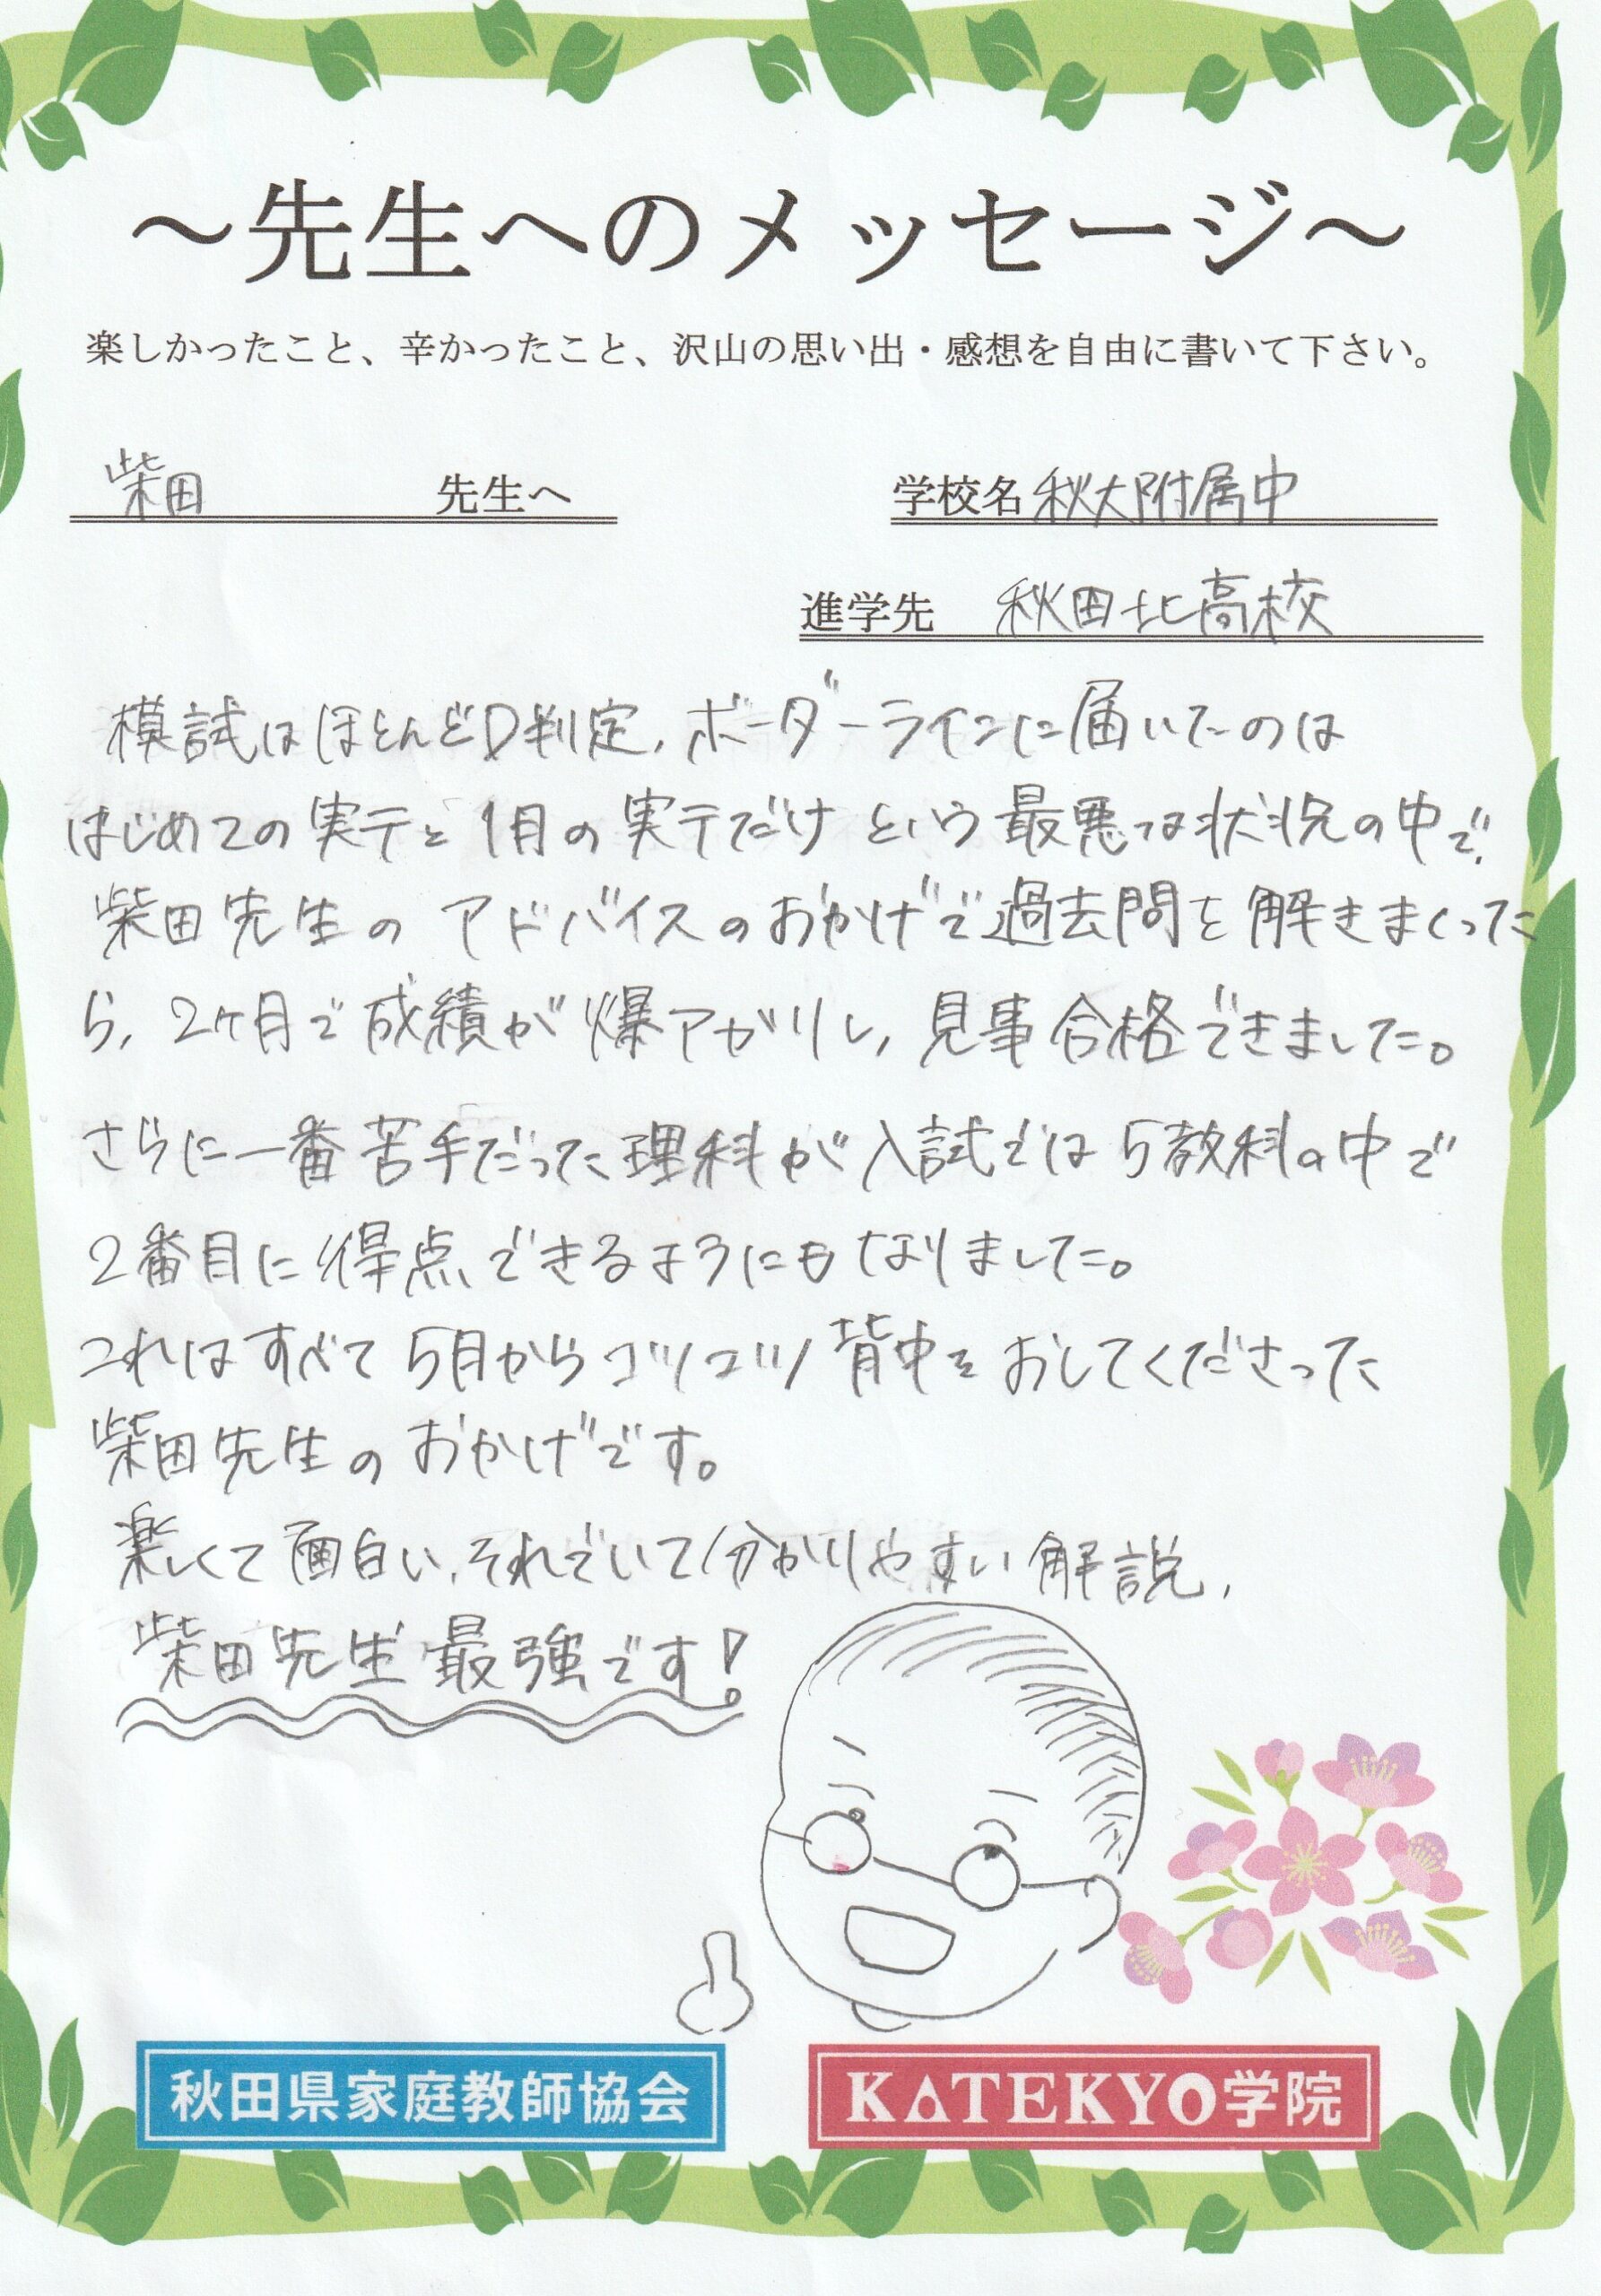 ～先生へのメッセージ～
楽しかったこと、辛かったこと、沢山の思い出・感想を自由に書いて下さい。
柴田 先生へ
学校名 秋大附属中
進学先 秋田北高校
模試はほとんどD判定、ボーダーラインに届いたのは
はじめての実テと1月の実テだけという最悪な状況の中で、
柴田先生のアドバイスのおかげで過去問を解きまくった
ら、2ヶ月で成績が爆アガりし、見事合格できました。
さらに一番苦手だった理科が入試では5教科の中で
2番目に得点できるようにもなりました。
これはすべて5月からコツコツ背中をおしてくださった
柴田先生のおかげです。
楽しくて面白い、それでいて分かりやすい解説、
柴田先生最強です!
秋田県家庭教師協会
KATEKYO学院